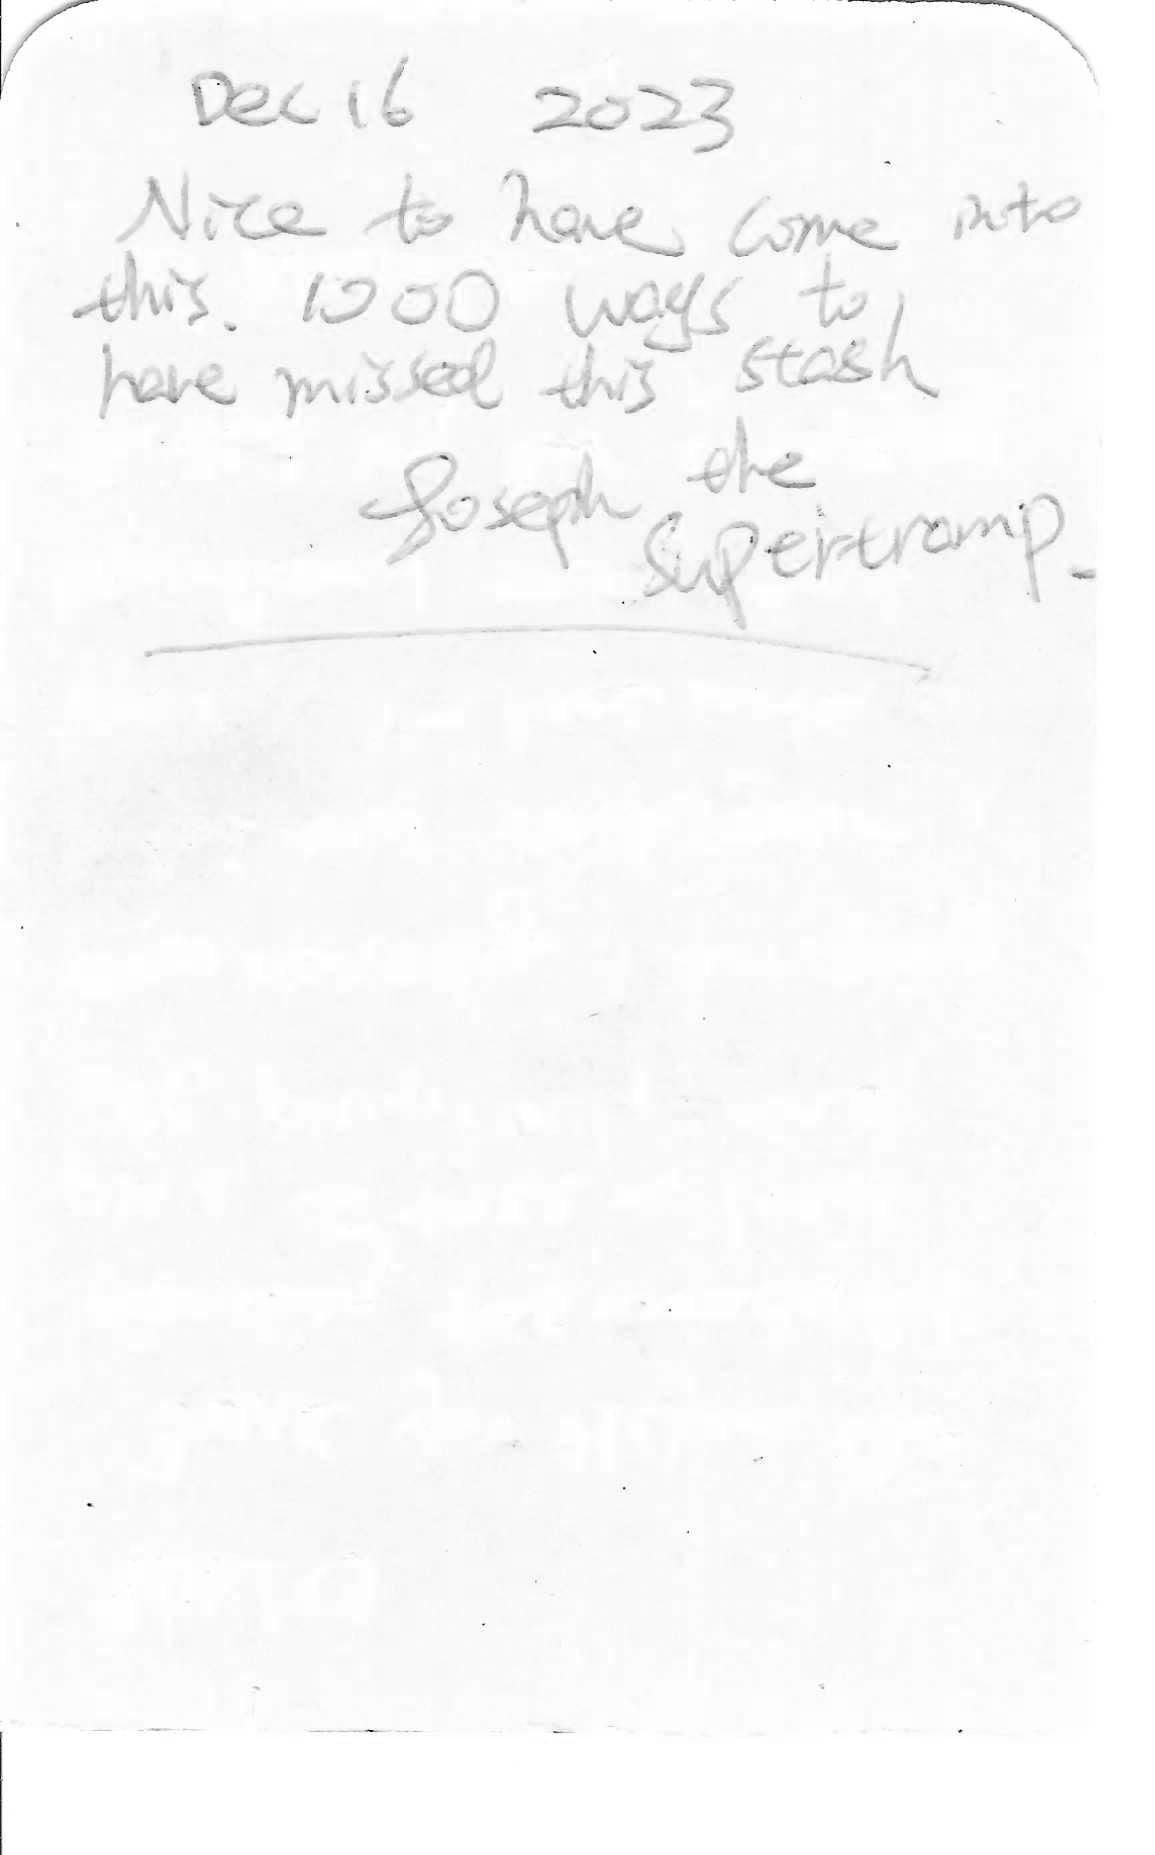 Dec 16 2023
Nice to have come into
this. 1000 ways to
have missed this stash
Joseph the
Supertramp.